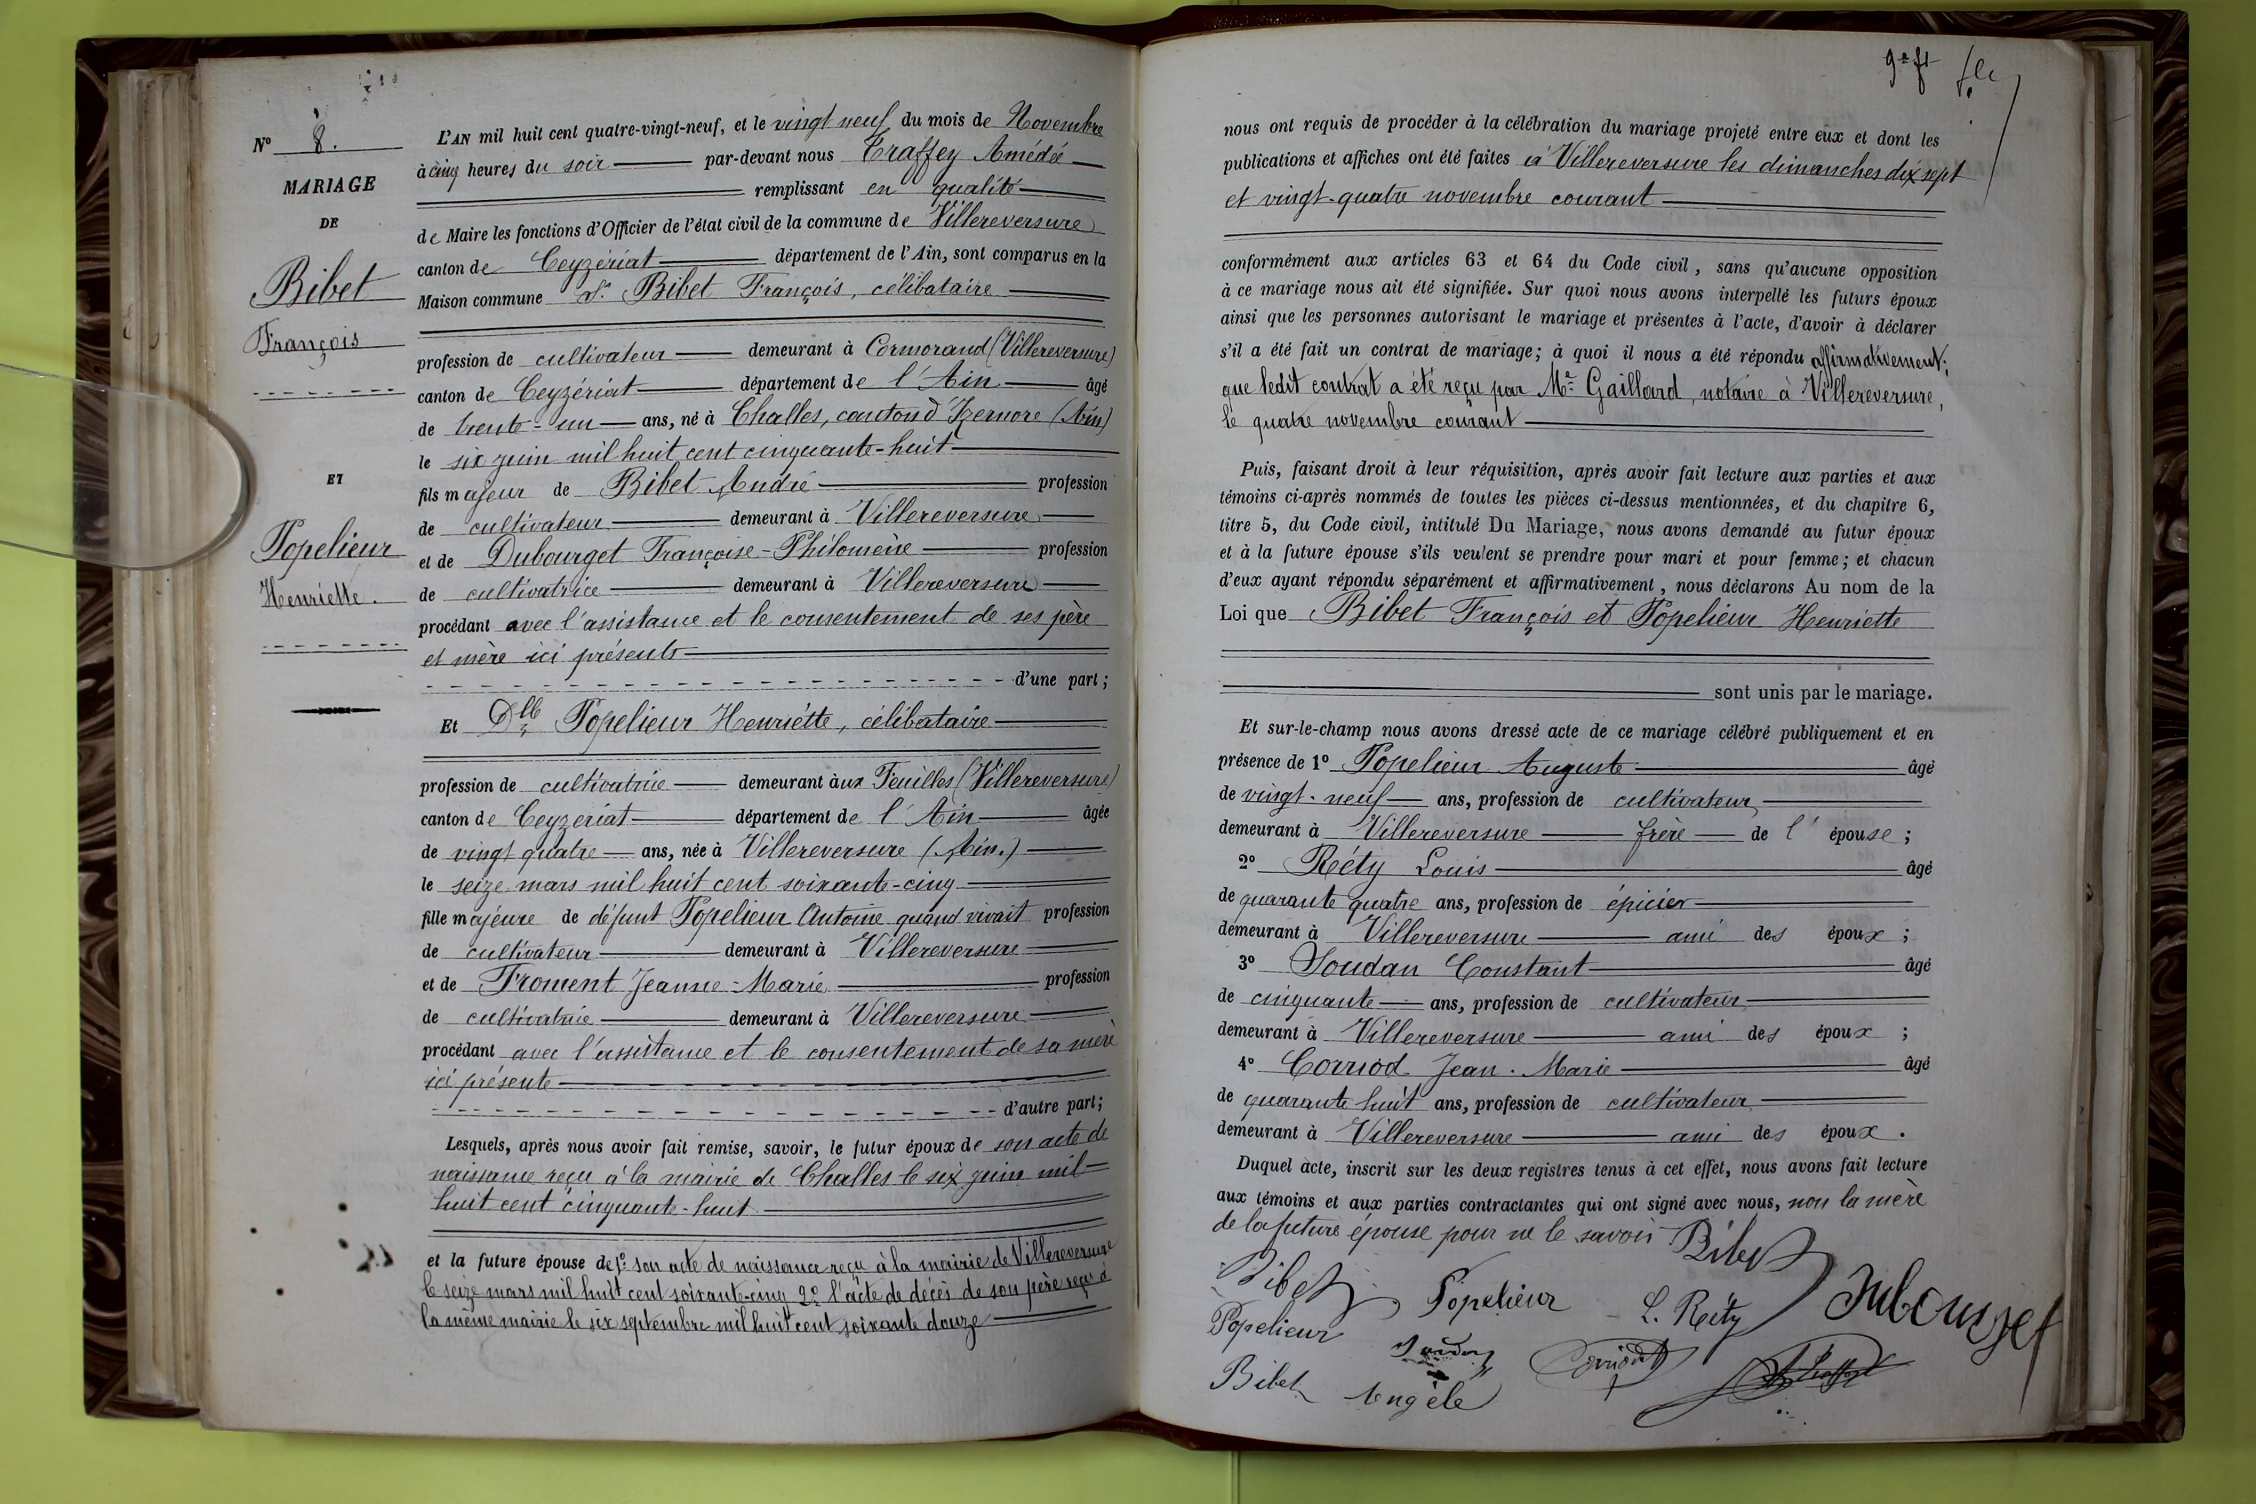 N° 8.
MARIAGE
DE
Bibet
François
ET
Popelieur
Henriette.
L'AN mil huit cent quatre-vingt-neuf, et le vingt neuf du mois de Novembre
à cinq heures du soir par-devant nous Traffey Amédée
remplissant en qualité
de Maire les fonctions d'Officier de l'état civil de la commune de Villereversure
canton de Ceyzériat département de l'Ain, sont comparus en la
Maison commune Sr Bibet François, célibataire
profession de cultivateur demeurant à Cormorand (Villereversure)
canton de Ceyzériat département de l'Ain âgé
de trente-un ans, né à Challes, canton d'Izernore (Ain)
le six juin mil huit cent cinquante-huit
fils majeur de Bibet André profession
de cultivateur demeurant à Villereversure
et de Dubourget Françoise-Philomène profession
de cultivatrice demeurant à Villereversure
procédant avec l'assistance et le consentement de ses père
et mère ici présents
d'une part;
Et Dlle Popelieur Henriette, célibataire
profession de cultivatrice demeurant aux Feuilles (Villereversure)
canton de Ceyzériat département de l'Ain âgée
de vingt quatre ans, née à Villereversure (Ain.)
le seize mars mil huit cent soixante-cinq
fille majeure de défunt Popelieur Antoine quand vivait profession
de cultivateur demeurant à Villereversure
et de Froment Jeanne-Marie profession
de cultivatrice demeurant à Villereversure
procédant avec l'assistance et le consentement de sa mère
ici présente
d'autre part;
Lesquels, après nous avoir fait remise, savoir, le futur époux de son acte de
naissance reçu à la mairie de Challes le six juin mil
huit cent cinquante-huit
et la future épouse de 1° son acte de naissance reçu à la mairie de Villereversure
le seize mars mil huit cent soixante-cinq 2° l'acte de décès de son père reçu à
la même mairie le six septembre mil huit cent soixante douze
nous ont requis de procéder à la célébration du mariage projeté entre eux et dont les
publications et affiches ont été faites à Villereversure les dimanches dix sept
et vingt-quatre novembre courant
conformément aux articles 63 et 64 du Code civil, sans qu'aucune opposition
à ce mariage nous ait été signifiée. Sur quoi nous avons interpellé les futurs époux
ainsi que les personnes autorisant le mariage et présentes à l'acte, d'avoir à déclarer
s'il a été fait un contrat de mariage; à quoi il nous a été répondu affirmativement;
que ledit contrat a été reçu par Me Gaillard, notaire à Villereversure,
le quatre novembre courant
Puis, faisant droit à leur réquisition, après avoir fait lecture aux parties et aux
témoins ci-après nommés de toutes les pièces ci-dessus mentionnées, et du chapitre 6,
titre 5, du Code civil, intitulé Du Mariage, nous avons demandé au futur époux
et à la future épouse s'ils veulent se prendre pour mari et pour femme; et chacun
d'eux ayant répondu séparément et affirmativement, nous déclarons Au nom de la
Loi que Bibet François et Popelieur Henriette
sont unis par le mariage.
Et sur-le-champ nous avons dressé acte de ce mariage célébré publiquement et en
présence de 1° Popelieur Auguste âgé
de vingt-neuf ans, profession de cultivateur
demeurant à Villereversure frère de l'épouse;
2° Réty Louis âgé
de quarante quatre ans, profession de épicier
demeurant à Villereversure ami des époux;
3° Soudan Constant âgé
de cinquante ans, profession de cultivateur
demeurant à Villereversure ami des époux;
4° Corriod Jean-Marie âgé
de quarante huit ans, profession de cultivateur
demeurant à Villereversure ami des époux.
Duquel acte, inscrit sur les deux registres tenus à cet effet, nous avons fait lecture
aux témoins et aux parties contractantes qui ont signé avec nous, non la mère
de la future épouse pour ne le savoir Bibet
Bibet Popelieur L. Réty Dubourget
Popelieur Soudan Corriod
Bibet Angèle